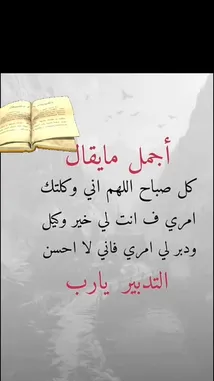 أجمل مايقال
كل صباح اللهم اني وكلتك
امري ف انت لي خير وكيل
ودبر لي امري فاني لا احسن
التدبير يارب